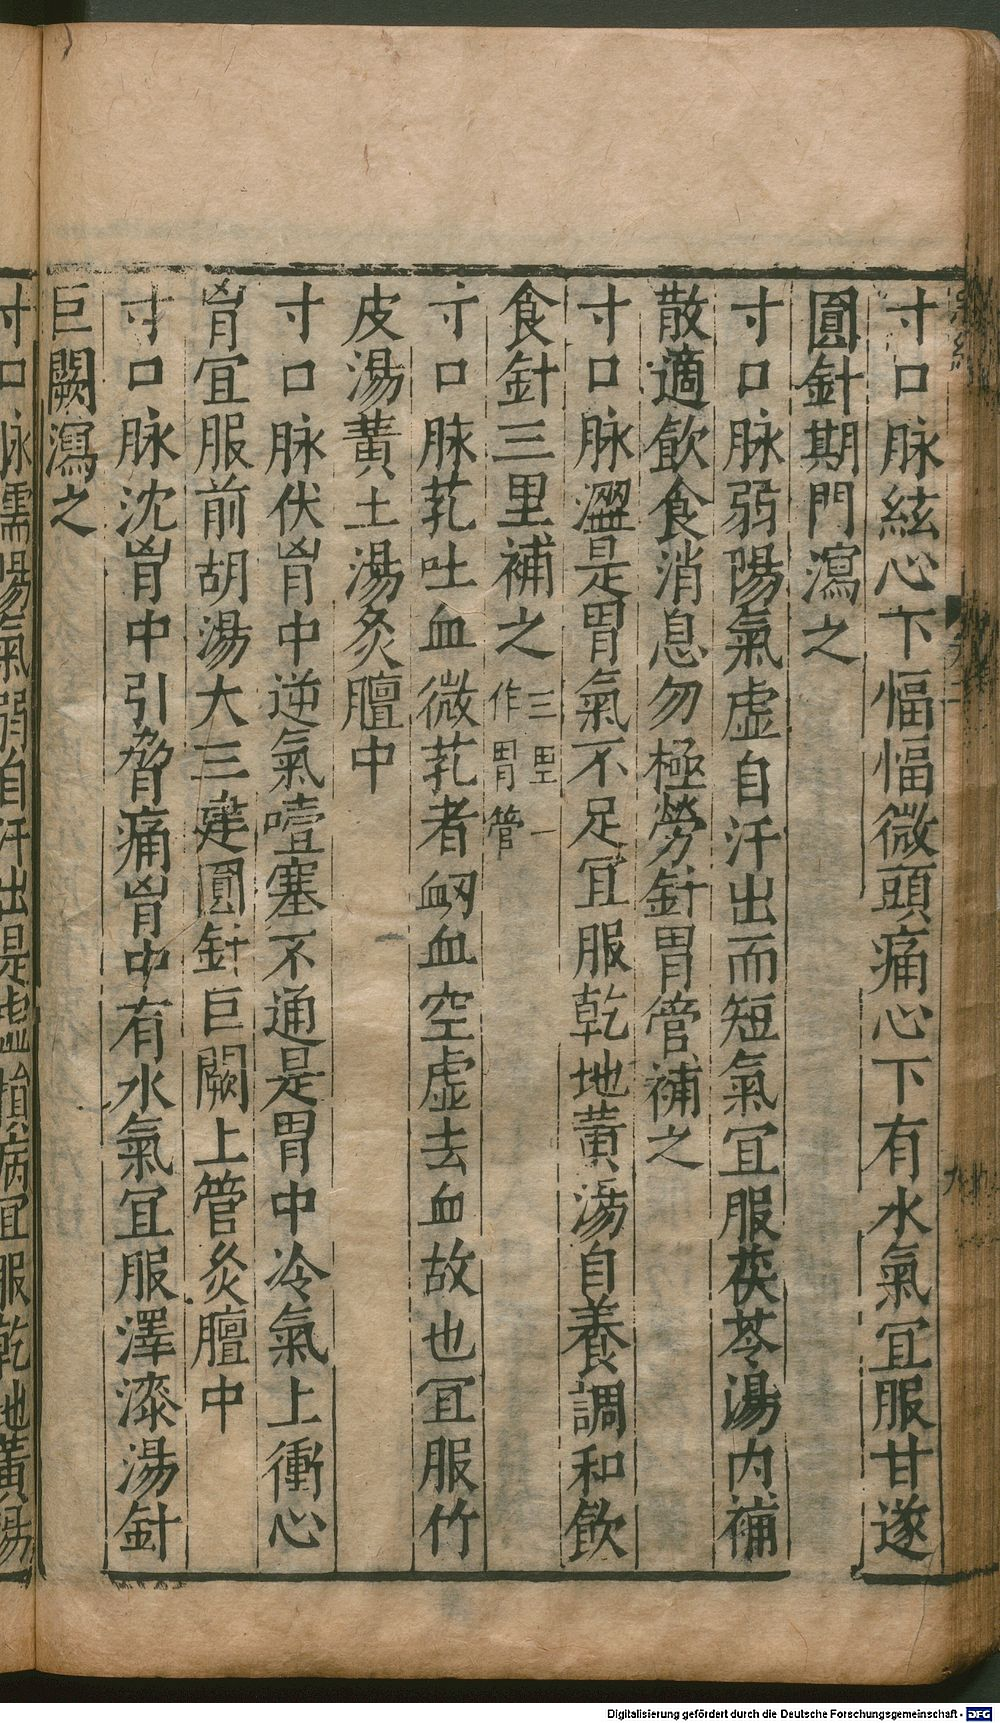 寸口脉絃心下愊愊微頭痛心下有水氣冝服甘遂
圓針期門瀉之
寸口脉弱陽氣虛自汗出而短氣冝服茯苓湯内補
散適飲食消息勿極勞針胃管補之
寸口脉澀是胃氣不足冝服乾地黄湯自養調和飲
食針三里補之三里一作胃管
寸口脉芤吐血微芤者衂血空虛去血故也冝服竹
皮湯黄土湯灸膻中
寸口脉伏胷中逆氣噎塞不通是胃中冷氣上衝心
胷冝服前胡湯大三建圓針巨闕上管灸膻中
寸口脉沈胷中引脅痛胷中有水氣冝服澤漆湯針
巨闕瀉之
寸口脉濡陽氣弱自汗出是虛損病冝服乾地黄湯
Digitalisierung gefördert durch die Deutsche Forschungsgemeinschaft - DFG